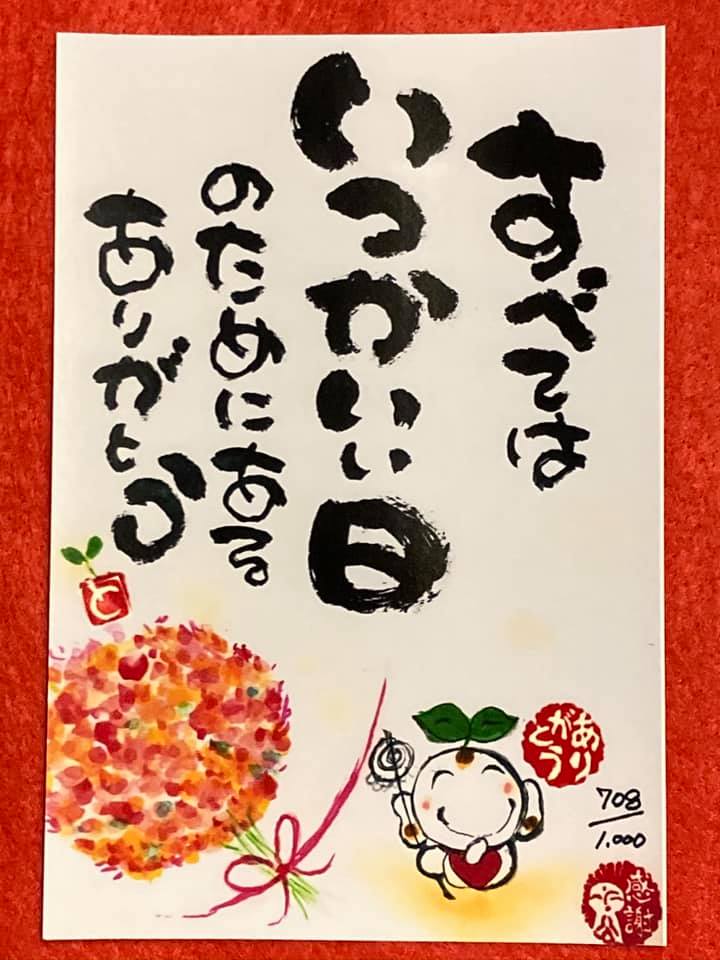 すべては
いつかいい日
のためにある
ありがとう
と
ありがとう
708/1.000
感謝